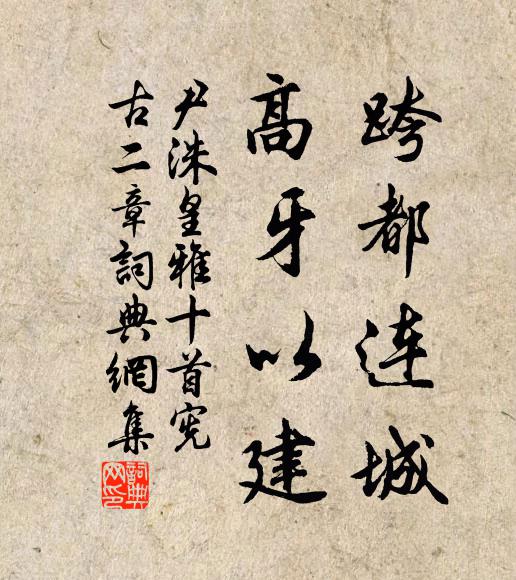 跨都连城
高牙以建
尹洙皇雅十首宪
古二章詞典網集
詞典网印